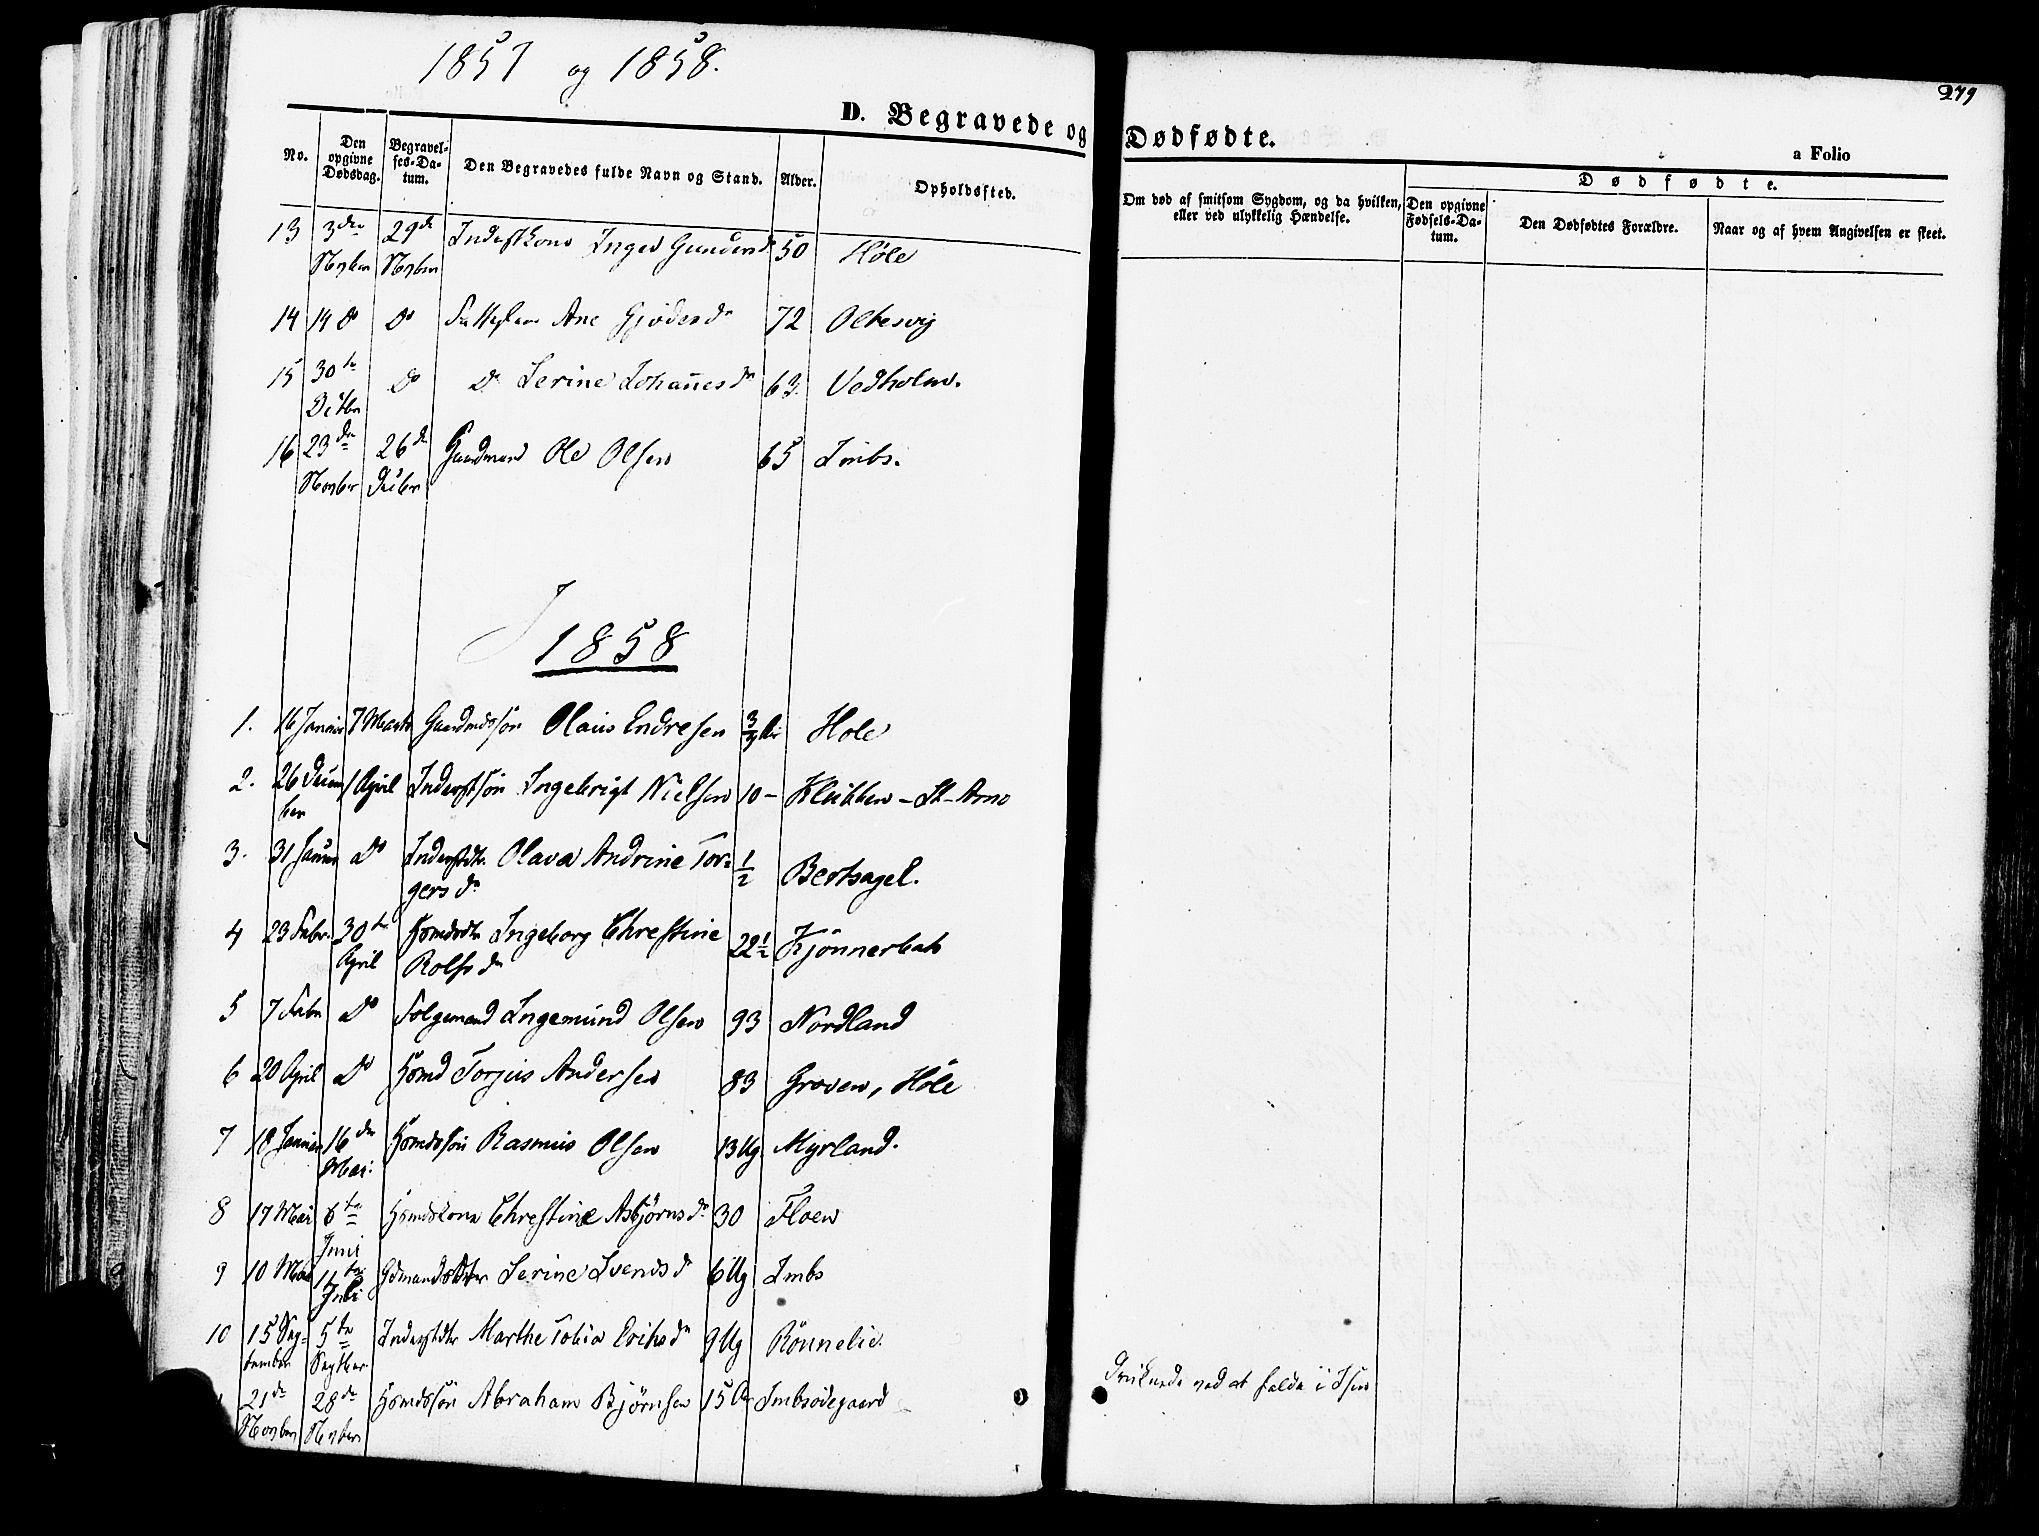 1857 og 1858.
279
D. Begravede og Dødfødte.
a Folio
No.
Den opgivne Dødsdag.
Begravelses-Datum.
Den Begravedes fulde Navn og Stand.
Alder.
Opholdssted.
Om død af smitsom Sygdom, og da hvilken, eller ved ulykkelig Hændelse.
Dødfødte.
Den opgivne Fødsels-Datum.
Den Dødfødtes Forældre.
Naar og af hvem Angivelsen er skeet.
13 3die Novber 29de Novber Inderstkone Inger 50 Høle
14 14 Do Do Ane 72 Oltesvig
15 30te Octbr Do Do Serine Johannesdr 63. Vedholm.
16 23de Novbr 26de Decbr Gaardmand Ole Olsen 65 Imbs.
1858
1. 16 Januar 7 Marts Gaardmdssøn Olaus Endresen 3/4 Aar Hole
2. 26 Decem 1 April Inderstsøn Ingebrigt Nielsen 10 –
ber
3. 31 Januar Do Inderstdtr. Olava Andrine Tor= 1/2 Bertsagel.
gersdr
4 23 Febr. 30te April Hsmdsdtr Ingeborg Christine 22 1/2
Rolfsdr
5 7 Febr Do Folgemand Ingemund Olsen 93 Nordland
6 20 April Do Hsmd Torjus Andersen 83 Groven, Høle
7 18 Januar 16de Mai. Hsmdssøn Rasmus Olsen 13 Ug Myrland.
8 17 Mai 6te Juni Hsmdskone Christine Asbjørnsdr 30 Floen
9 10 Mai Juli Gdmandsdtr Serine Svendsdr 6 Ug Imbs
10 15 Sep= 5te Inderstdtr Marthe Tobia 9 Ug Rönnelie.
tember Septbr
21de Novber 28de Novber Hsmdssøn Abraham Bjørnsen 15 Aar Imbsødegaard
Druknede ved at falde i Isen